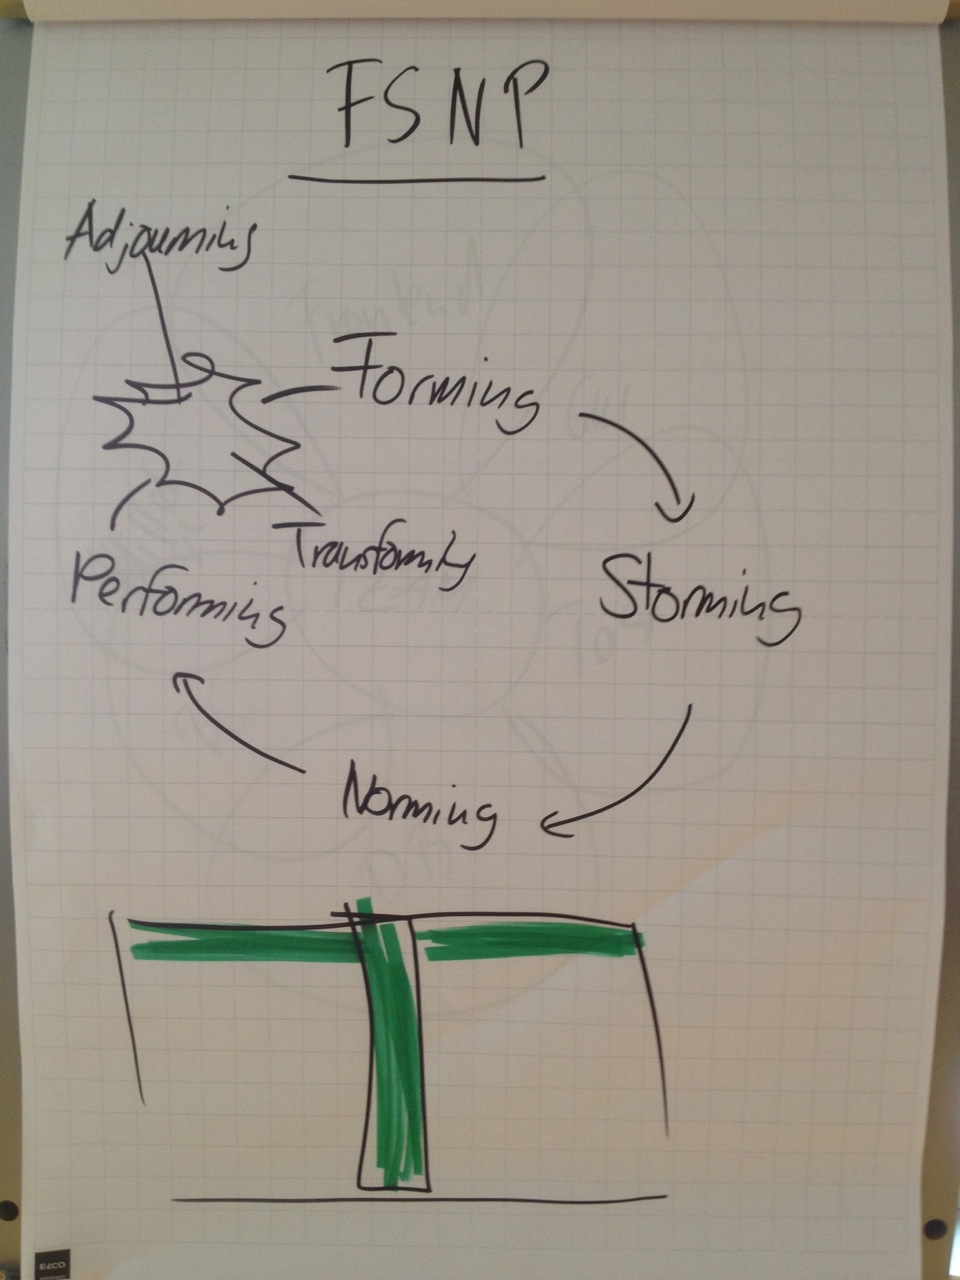 FSNP
Adjourning
Forming
Transforming
Performing
Storming
Norming
ELCO